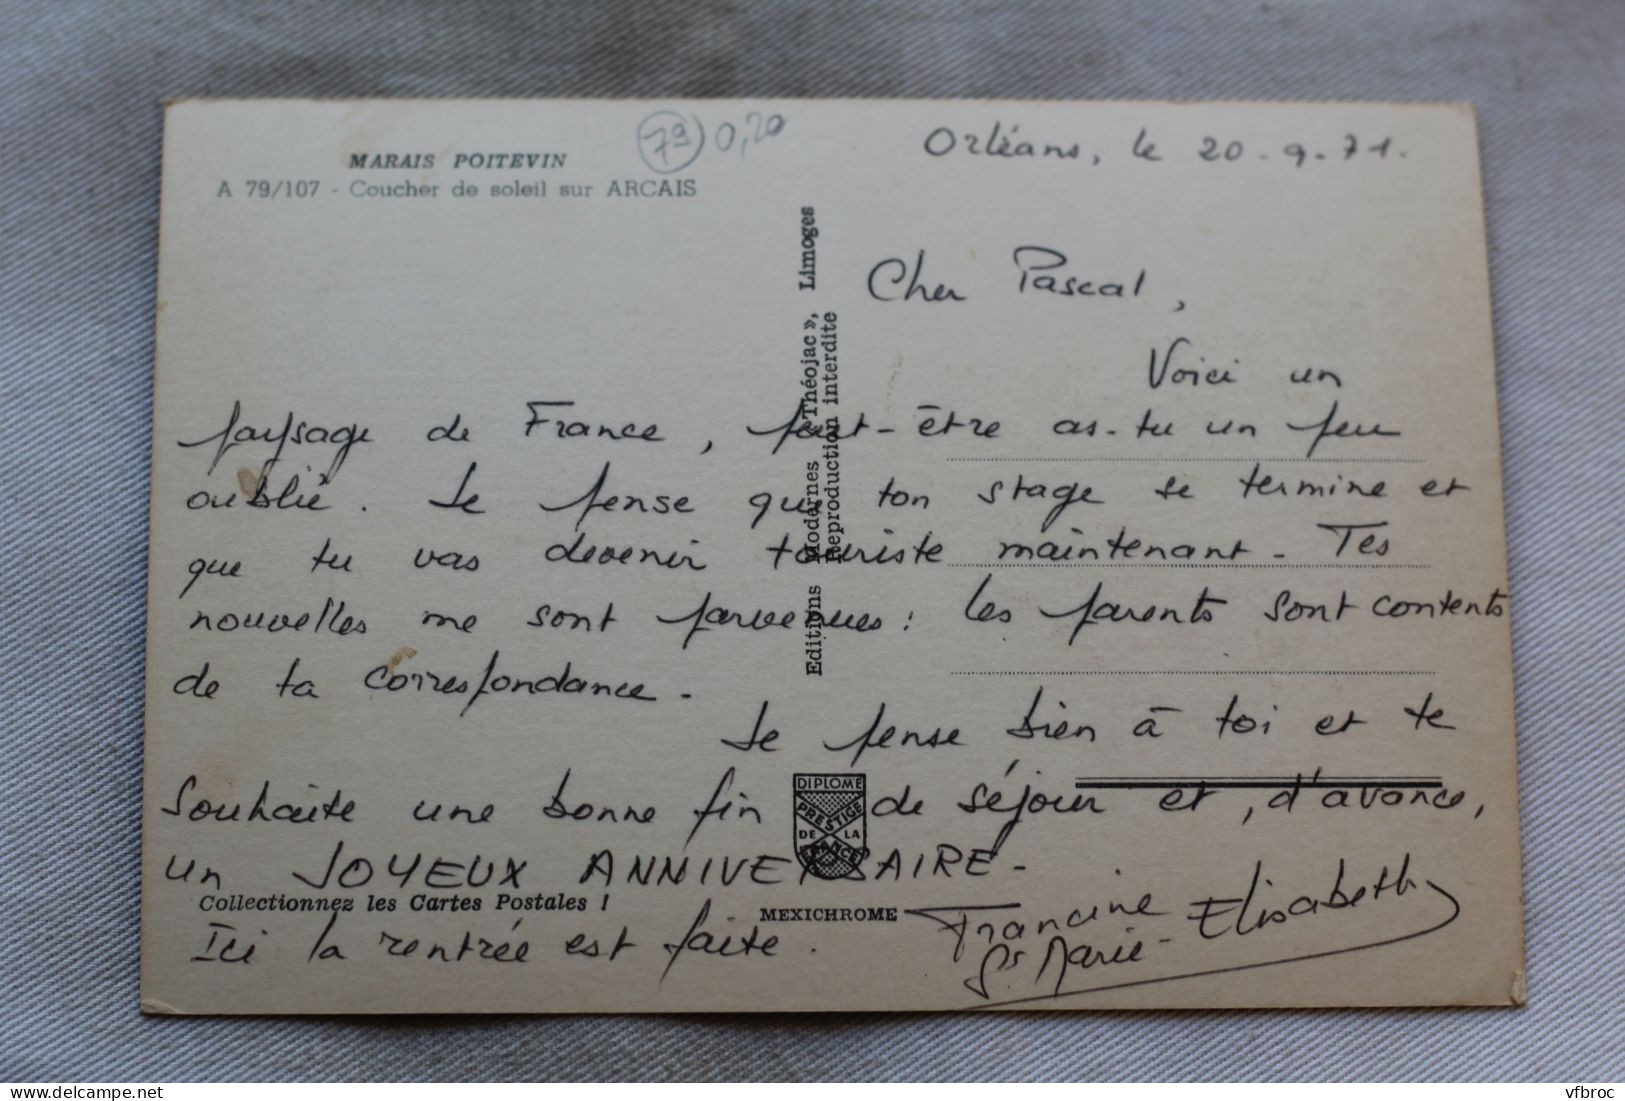 MARAIS POITEVIN
A 79/107 - Coucher de soleil sur ARCAIS
79 0,20
Orléans, le 20-9-71.
Cher Pascal,
Voici un
paysage de France, peut-être as-tu un peu
oublié. Je pense que ton stage se termine et
que tu vas devenir touriste maintenant. Tes
nouvelles me sont parvenues : les parents sont contents
de ta correspondance.
Je pense bien à toi et te
souhaite une bonne fin de séjour et, d'avance,
un JOYEUX ANNIVERSAIRE.
Ici la rentrée est faite.
Francine
Sr Marie-Elisabeth
Editions Modernes « Théojac », Limoges
Reproduction interdite
DIPLOME
PRESTIGE
DE LA
FRANCE
Collectionnez les Cartes Postales !
MEXICHROME
vfbroc
www.delcampe.net